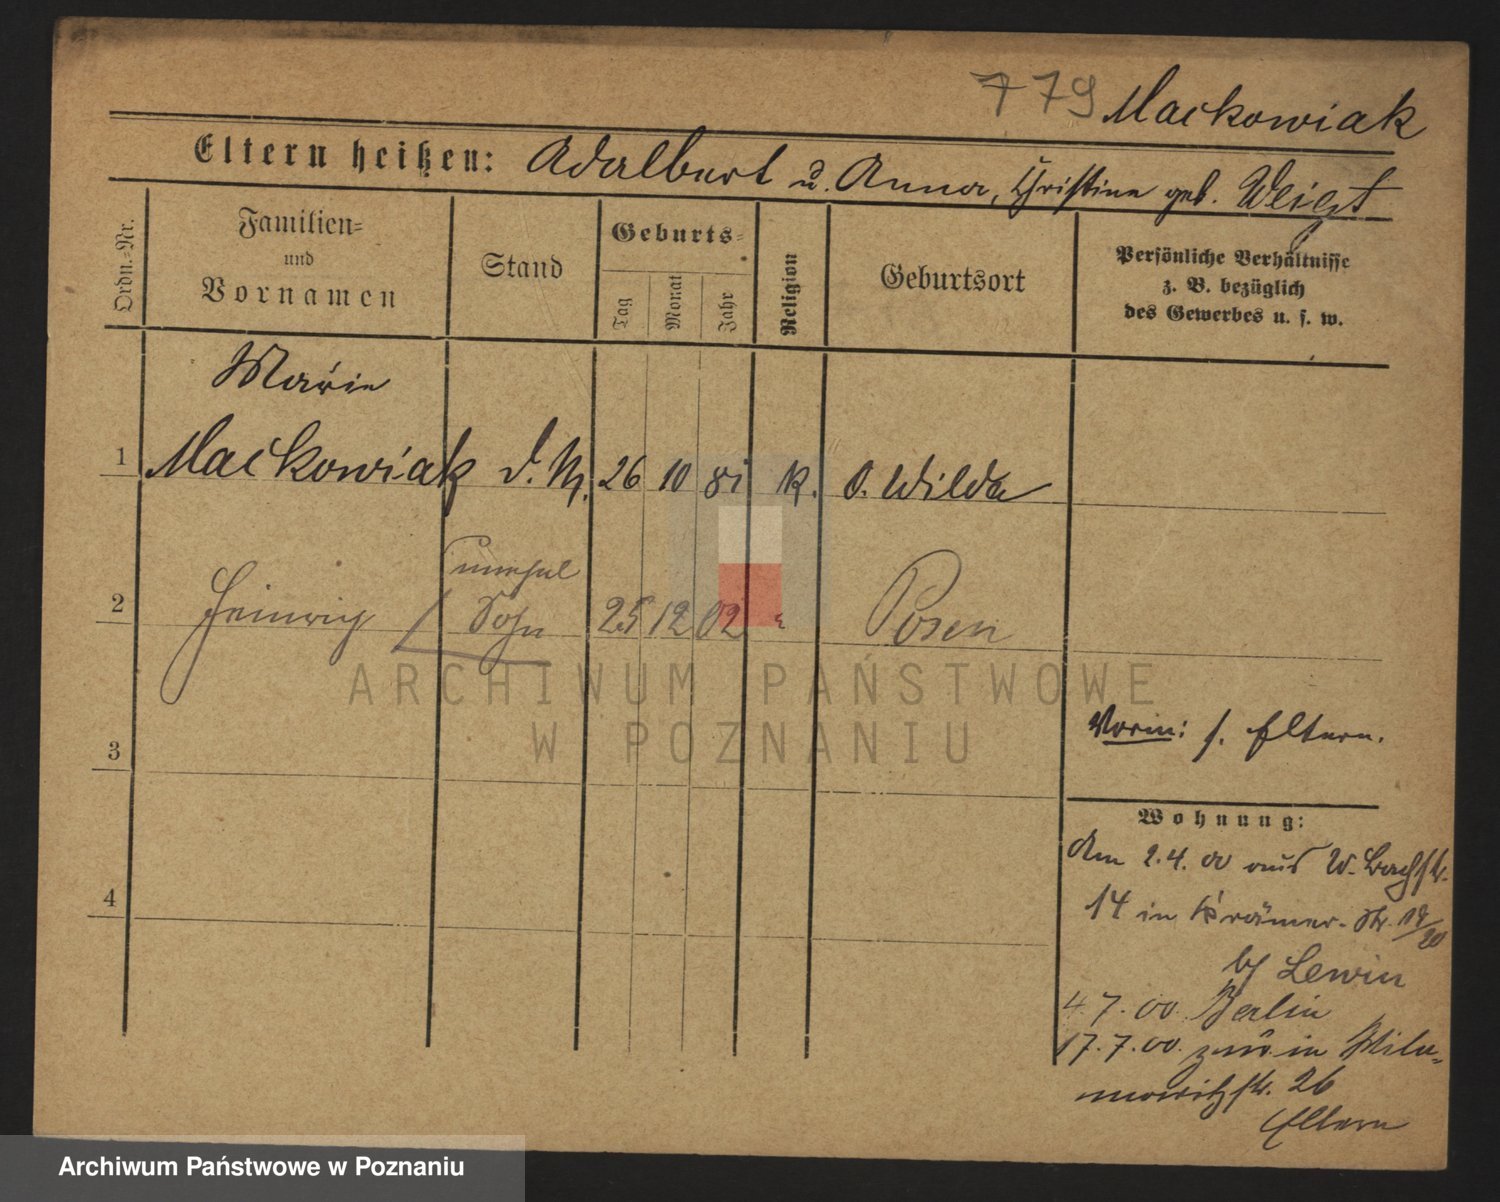 779 Mackowiak
Eltern heißen: Adalbert u. Anna, Christine geb. Weigt
Ordn.-Nr.
Familien-
und
Vornamen
Stand
Geburts-
Tag
Monat
Jahr
Religion
Geburtsort
Persönliche Verhältnisse
z. B. bezüglich
des Gewerbes u. s. w.
Marie
1 Mackowiak d. M. 26 10 81 k. O. Wilda
unehel
2 Heinrich Sohn 25 12 02 " Posen
ARCHIWUM PAŃSTWOWE
W POZNANIU
3
Vorin: s. Eltern.
Wohnung:
Am 2.4.00 aus W. Bachstr.
14 in Krämer-Str. 19/20
4
b/ Lewin
4.7.00. Berlin
17.7.00. zur. in
26
Eltern
Archiwum Państwowe w Poznaniu